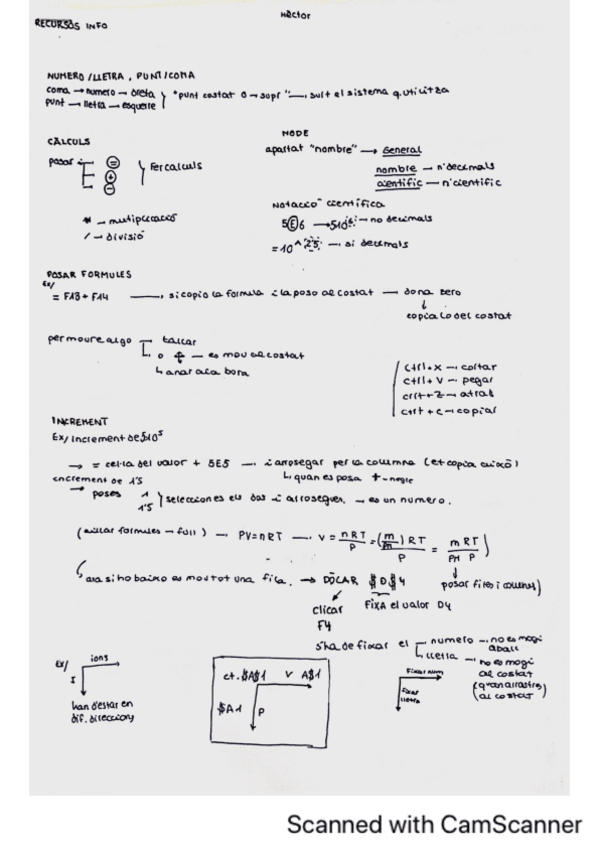 Hèctor
RECURSOS INFO
NUMERO/LLETRA, PUNT/COMA
coma → numero → dreta
punt → lletra → esquerre
"punt costat 0 → supr" → surt el sistema q utilitza
CÀLCULS
posar
=
+
-
Fer calculs
* → multiplicació
/ → divisió
MODE
apartat "nombre" → General
nombre → nº decimals
cientific → nº cientific
Notació científica
5E6 → 5·10⁶ → no decimals
= 10^2'5 → si decimals
POSAR FORMULES
Ex/
= FA3 + FA4 → si copio la formula i la poso al costat → dona zero
↓
copia lo del costat
per moure algo
tallar
o + → es mou al costat
↳ anar a la bora
ctrl + x → coltar
ctrl + v → pegar
crlt + z → atras
ctrl + c → copiar
INCREMENT
Ex/ Increment de 5·10⁵
→ = cel·la del valor + 5E5 → i arrosegar per la columna (et copia això)
↳ quan es posa + negre
increment de 1'5
→ poses
1
1'5
selecciones els dos i arrosegues. → es un numero.
formules → full) → PV=nRT → V = nRT/P = (m/m)RT/P = mRT/PM P)
posar files i columnes)
ara si ho baixo es mou tot una fila. → DÒLAR $D$4
clicar
F4
FIXA el valor D4
S'ha de fixar el
numero → no es mogi
aball
lletra → no es mogi
al costat
(quan arrastres)
(al costat)
Ex/
ions
I
han d'estar en
dif. direccions
ct. $A$1
V A$1
$A1
P
Fixar num
Fixar
lletra
Scanned with CamScanner